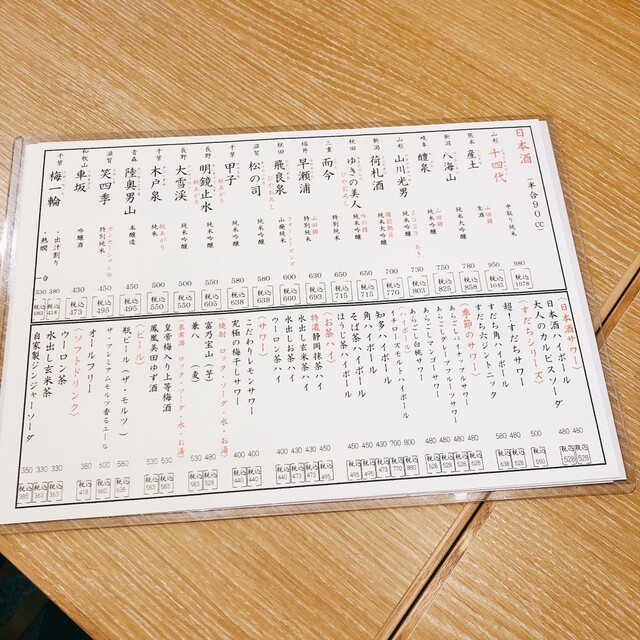 日本酒 （半合90cc）
山形 十四代 中取り純米 980 税込1078
熊本 産土 山田錦 生酒 950 税込1045
新潟 八海山 純米大吟醸 780 税込858
岐阜 醴泉 山田錦 純米吟醸 750 税込825
山形 山川光男 2023 あき 純米 730
新潟 荷札酒 純米大吟醸 700 税込770
秋田 ゆきの美人 ひやおろし 純米吟醸 650 税込715
三重 而今 特別純米 650 税込715
福井 早瀬浦 山田錦 純米 630 税込693
秋田 飛良泉 ひやおろし 山廃純米 600 税込660
滋賀 松の司 純米 580 税込638
千葉 甲子 純米吟醸 580 税込638
長野 明鏡止水 秋あがり 純米 550 税込605
長野 大雪渓 純米吟醸 500 税込550
千葉 木戸泉 秋あがり 純米 500 税込550
青森 陸奥男山 本醸造 450 税込495
滋賀 笑四季 特別純米 450 税込495
和歌山 車坂 吟醸酒 430 税込473
千葉 梅一輪 一合
・出汁割り 380 税込418
・熱燗 530 税込583
（日本酒サワー）
日本酒ハイボール 480 税込528
大人のカルピスソーダ 480 税込528
（すだちシリーズ）
超！すだちサワー 500 税込550
すだち角ハイボール 580 税込638
すだち六ジントニック 580 税込638
（季節のサワー）
あらごしパイナップルサワー 480 税込528
あらごしグレープフルーツサワー 480 税込528
あらごしマンゴーサワー 480 税込528
あらごし白桃サワー 480 税込528
（ハイボール）
知多ハイボール 700
角ハイボール 430 税込473
そば茶ハイボール 450 税込495
ほうじ茶ハイボール 450 税込495
（お茶ハイ）
特濃静岡抹茶ハイ 450 税込495
水出し玄米茶ハイ 430 税込473
水出しお茶ハイ 430 税込473
ウーロン茶ハイ 400 税込440
（サワー）
こだわりレモンサワー 400 税込440
究極の梅干しサワー 400 税込440
（焼酎）ロック・ソーダ・水・お湯
富乃宝山（芋） 480 税込528
兼八（麦） 530 税込583
（果実酒）ロック・ソーダ・水・お湯
皇帝梅入り上等梅酒 530 税込583
鳳凰美田ゆず酒 530 税込583
（ビール）
瓶ビール（ザ・モルツ） 580 税込638
ザ・プレミアムモルツ香るエール 600 税込660
オールフリー 380 税込418
（ソフトドリンク）
ウーロン茶 330 税込363
水出し玄米茶 330 税込363
自家製ジンジャーソーダ 350 税込385